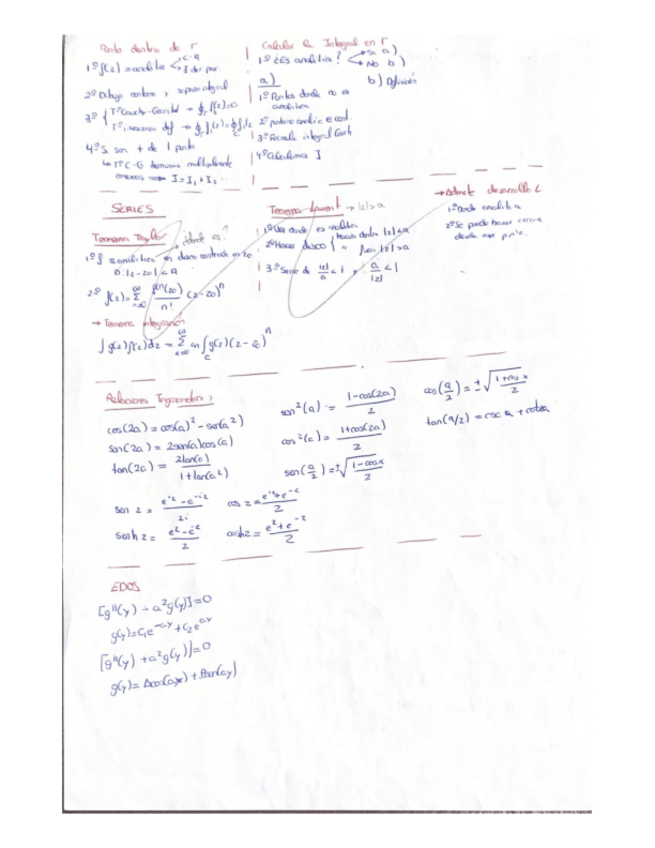 Punto dentro de Γ
1º f(z) = analitica < C-R
I der par.
2º Dibujo contorno y separo integral
3º { Tº Cauchy-Goursat → ∮ f(z)=0
Tº
4º Si son + de 1 punto
↳ Tº C-G dominios multiplemente
conexos ⟹ I = I₁ + I₂ ...
Calcular la Integral en Γ
1º ¿Es analitica? < Si a)
No b)
a)
b) Definición
1º Puntos donde no es
analitica
2º
3º Formula integral Cauchy
4º Calculamos I
SERIES
Teorema Taylor → ¿donde es?
1º f analitica en disco centrado en z₀
D: |z-z₀| < R
2º f(z) = Σ(n=0, ∞) fⁿ(z₀)/n! (z-z₀)ⁿ
→ Teorema integración
∫g(z)f(z)dz = Σ(n=0, ∞) aₙ ∫_C g(z)(z-z₀)ⁿ
Teorema Laurent → |z|>a
1º Ver donde es analitica
2º Hacer disco { hacia dentro |z|<a
" fuera |z|>a
3º Serie de |z|/a < 1 y a/|z| < 1
→ Admite desarrollo
1º Donde analitica
2º Se puede hacer
desde ese punto.
Relaciones Trigonometricas
cos(2a) = cos(a)² - sen(a²)
sen(2a) = 2sen(a)cos(a)
tan(2a) = 2tan(a)/1+tan(a²)
sen²(a) = 1-cos(2a)/2
cos²(a) = 1+cos(2a)/2
sen(a/2) = ±√(1-cosx/2)
cos(a/2) = ±√(1+cosx/2)
tan(a/2) = csc a + cota
sen z = e^iz - e^-iz/2i
cos z = e^iz + e^-z/2
senh z = e^z - e^z/2
cosh z = e^z + e^-z/2
EDOS
[g''(y) - a²g(y)] = 0
g(y) = C₁e^-ay + C₂e^ay
[g''(y) + a²g(y)] = 0
g(y) = Acos(ay) + Bsen(ay)